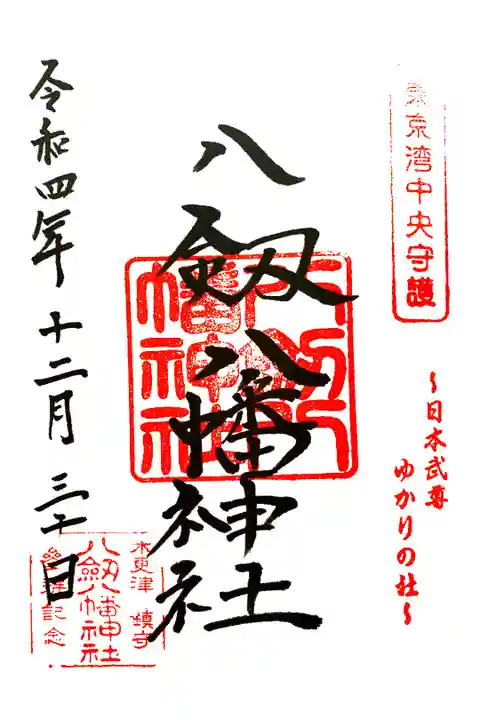 東京湾中央守護
～日本武尊
ゆかりの社～
八劔八幡神社
八剱八幡神社
令和四年 十二月 三十日
木更津 鎮守
八劔八幡神社
参拝記念